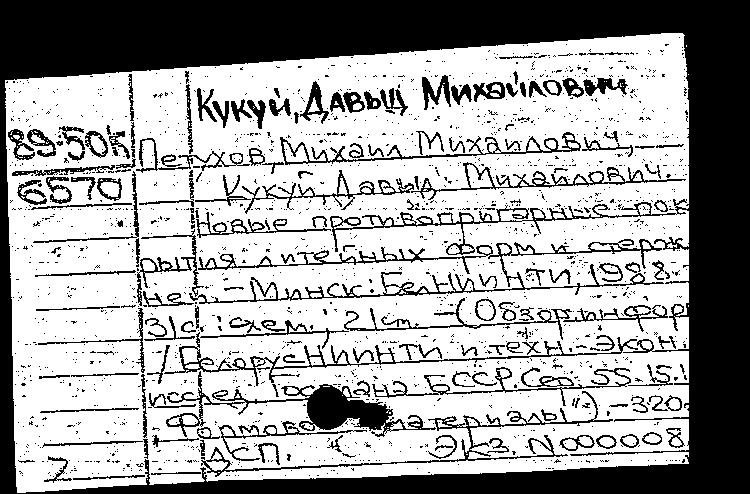 Кукуй, Давыд Михайлович
89-50к Петухов, Михаил Михайлович,
6570 Кукуй, Давыд Михайлович.
Новые противопригарные пок
рытия литейных форм и стерж
ней. - Минск: БелНИИНТИ, 1988.
31 с.: схем.; 21 см. - (Обзор. информ
/ БелорусНИИНТИ и техн.-экон.
исслед. Госплана БССР. Сер. 55.15.1
"Формово материалы"). - 320.
ДСП. ЭКЗ. N000008
2